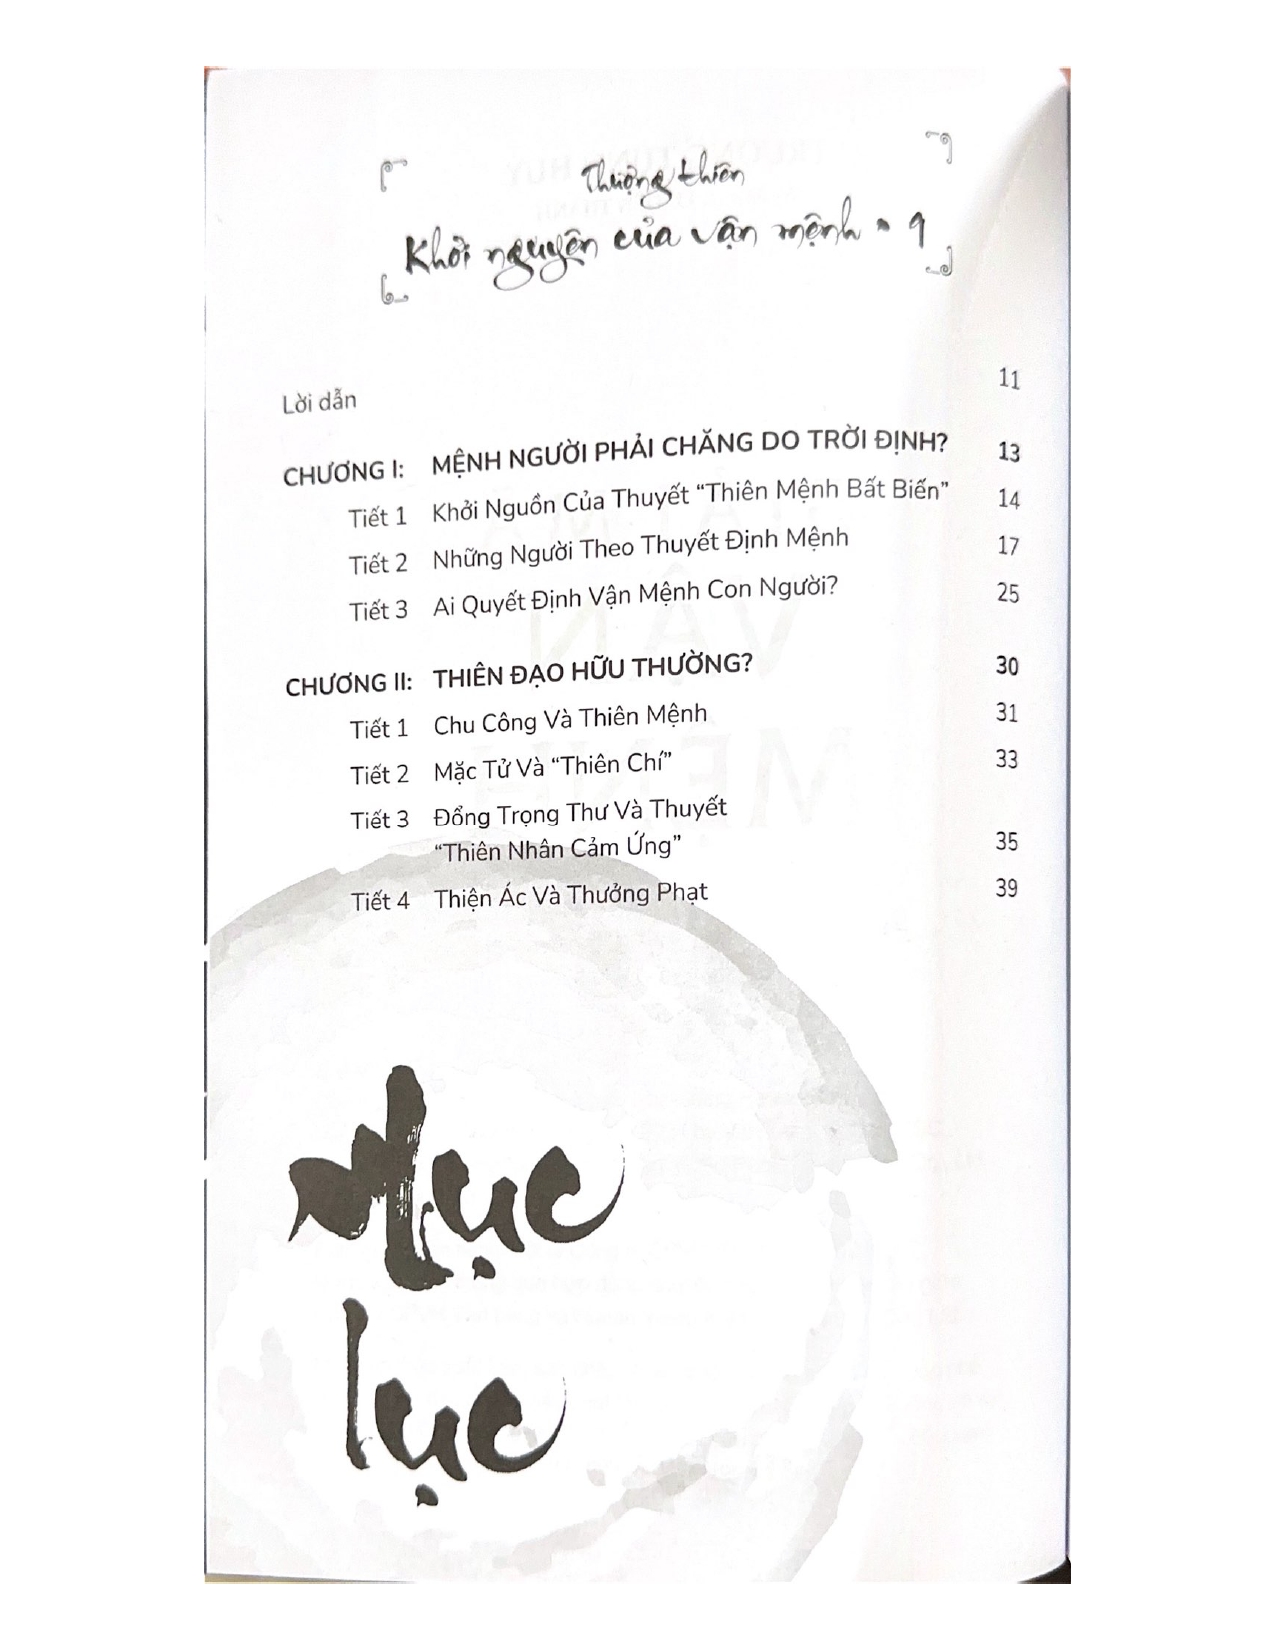 Thượng thiên
Khởi nguyên của vận mệnh • 9
Lời dẫn 11
CHƯƠNG I: MỆNH NGƯỜI PHẢI CHĂNG DO TRỜI ĐỊNH? 13
Tiết 1 Khởi Nguồn Của Thuyết “Thiên Mệnh Bất Biến” 14
Tiết 2 Những Người Theo Thuyết Định Mệnh 17
Tiết 3 Ai Quyết Định Vận Mệnh Con Người? 25
CHƯƠNG II: THIÊN ĐẠO HỮU THƯỜNG? 30
Tiết 1 Chu Công Và Thiên Mệnh 31
Tiết 2 Mặc Tử Và “Thiên Chí” 33
Tiết 3 Đổng Trọng Thư Và Thuyết
“Thiên Nhân Cảm Ứng” 35
Tiết 4 Thiện Ác Và Thưởng Phạt 39
Mục
lục